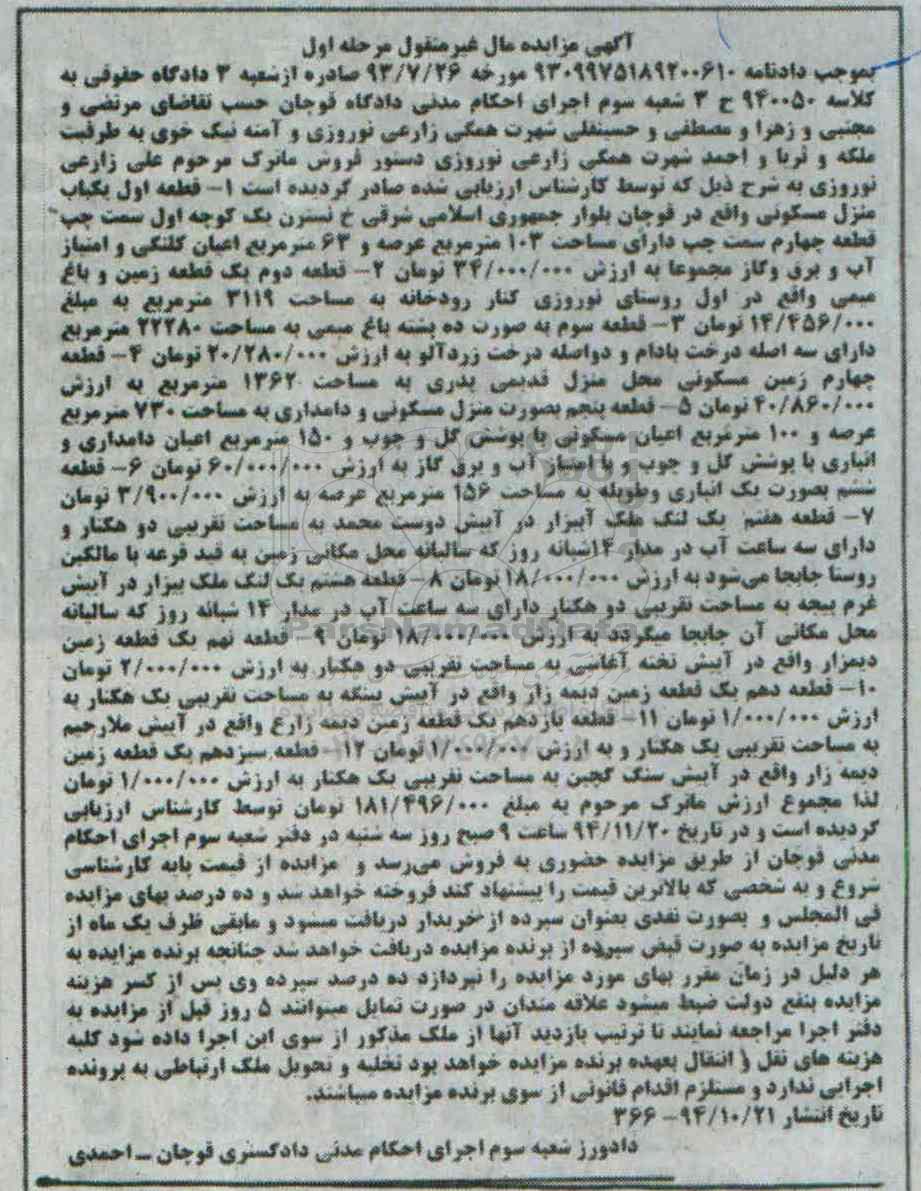 آگهی مزایده مال غیرمنقول مرحله اول
بموجب دادنامه ۹۳۰۹۹۷۵۱۸۹۲۰۰۶۱۰ مورخه ۹۳/۷/۲۶ صادره ازشعبه ۳ دادگاه حقوقی به
کلاسه ۹۴۰۰۵۰ ج ۳ شعبه سوم اجرای احکام مدنی دادگاه قوچان حسب تقاضای مرتضی و
مجتبی و زهرا و مصطفی و حسینقلی شهرت همگی زارعی نوروزی و آمنه نیک خوی به طرفیت
ملکه و ثریا و احمد شهرت همگی زارعی نوروزی دستور فروش ماترک مرحوم علی زارعی
نوروزی به شرح ذیل که توسط کارشناس ارزیابی شده صادر گردیده است ۱- قطعه اول یکباب
منزل مسکونی واقع در قوچان بلوار جمهوری اسلامی شرقی خ نسترن یک کوچه اول سمت چپ
قطعه چهارم سمت چپ دارای مساحت ۱۰۳ مترمربع عرصه و ۶۳ مترمربع اعیان کلنگی و امتیاز
آب و برق وگاز مجموعا به ارزش ۳۴/۰۰۰/۰۰۰ تومان ۲- قطعه دوم یک قطعه زمین و باغ
میمی واقع در اول روستای نوروزی کنار رودخانه به مساحت ۳۱۱۹ مترمربع به مبلغ
۱۴/۴۵۶/۰۰۰ تومان ۳- قطعه سوم به صورت ده پشته باغ میمی به مساحت ۲۲۲۸۰ مترمربع
دارای سه اصله درخت بادام و دواصله درخت زردآلو به ارزش ۲۰/۲۸۰/۰۰۰ تومان ۴- قطعه
چهارم زمین مسکونی محل منزل قدیمی پدری به مساحت ۱۳۶۲ مترمربع به ارزش
۴۰/۸۶۰/۰۰۰ تومان ۵- قطعه پنجم بصورت منزل مسکونی و دامداری به مساحت ۷۳۰ مترمربع
عرصه و ۱۰۰ مترمربع اعیان مسکونی با پوشش گل و چوب و ۱۵۰ مترمربع اعیان دامداری و
انباری با پوشش گل و چوب و با امتیاز آب و برق گاز به ارزش ۶۰/۰۰۰/۰۰۰ تومان ۶- قطعه
ششم بصورت یک انباری وطویله به مساحت ۱۵۶ مترمربع عرصه به ارزش ۳/۹۰۰/۰۰۰ تومان
۷- قطعه هفتم یک لنگ ملک آبیزار در آبیش دوست محمد به مساحت تقریبی دو هکتار و
دارای سه ساعت آب در مدار ۱۴شبانه روز که سالیانه محل مکانی زمین به قید قرعه با مالکین
روستا جابجا می‌شود به ارزش ۱۸/۰۰۰/۰۰۰ تومان ۸- قطعه هشتم یک لنگ ملک بیزار در آبیش
غرم بیجه به مساحت تقریبی دو هکتار دارای سه ساعت آب در مدار ۱۴ شبانه روز که سالیانه
محل مکانی آن جابجا میگردد به ارزش ۱۸/۰۰۰/۰۰۰ تومان ۹ - قطعه نهم یک قطعه زمین
دیمزار واقع در آبیش تخته آغاسی به مساحت تقریبی دو هکتار به ارزش ۲/۰۰۰/۰۰۰ تومان
۱۰- قطعه دهم یک قطعه زمین دیمه زار واقع در آبیش بسگه به مساحت تقریبی یک هکتار به
ارزش ۱/۰۰۰/۰۰۰ تومان ۱۱- قطعه یازدهم یک قطعه زمین دیمه زارع واقع در آبیش ملارحیم
به مساحت تقریبی یک هکتار و به ارزش ۱/۰۰۰/۰۰۰ تومان ۱۲- قطعه سیزدهم یک قطعه زمین
دیمه زار واقع در آبیش سنگ گچین به مساحت تقریبی یک هکتار به ارزش ۱/۰۰۰/۰۰۰ تومان
لذا مجموع ارزش ماترک مرحوم به مبلغ ۱۸۱/۴۹۶/۰۰۰ تومان توسط کارشناس ارزیابی
گردیده است و در تاریخ ۹۴/۱۱/۲۰ ساعت ۹ صبح روز سه شنبه در دفتر شعبه سوم اجرای احکام
مدنی قوچان از طریق مزایده حضوری به فروش می‌رسد و مزایده از قیمت پایه کارشناسی
شروع و به شخصی که بالاترین قیمت را پیشنهاد کند فروخته خواهد شد و ده درصد بهای مزایده
فی المجلس و بصورت نقدی بعنوان سپرده از خریدار دریافت میشود و مابقی ظرف یک ماه از
تاریخ مزایده به صورت قبض سپرده از برنده مزایده دریافت خواهد شد چنانچه برنده مزایده به
هر دلیل در زمان مقرر بهای مورد مزایده را نپردازد ده درصد سپرده وی پس از کسر هزینه
مزایده بنفع دولت ضبط میشود علاقه مندان در صورت تمایل میتوانند ۵ روز قبل از مزایده به
دفتر اجرا مراجعه نمایند تا ترتیب بازدید آنها از ملک مذکور از سوی این اجرا داده شود کلیه
هزینه های نقل و انتقال بعهده برنده مزایده خواهد بود تخلیه و تحویل ملک ارتباطی به پرونده
اجرایی ندارد و مستلزم اقدام قانونی از سوی برنده مزایده میباشند.
تاریخ انتشار ۹۴/۱۰/۲۱- ۳۶۶
دادورز شعبه سوم اجرای احکام مدنی دادگستری قوچان ــ احمدی
ParsNamadData